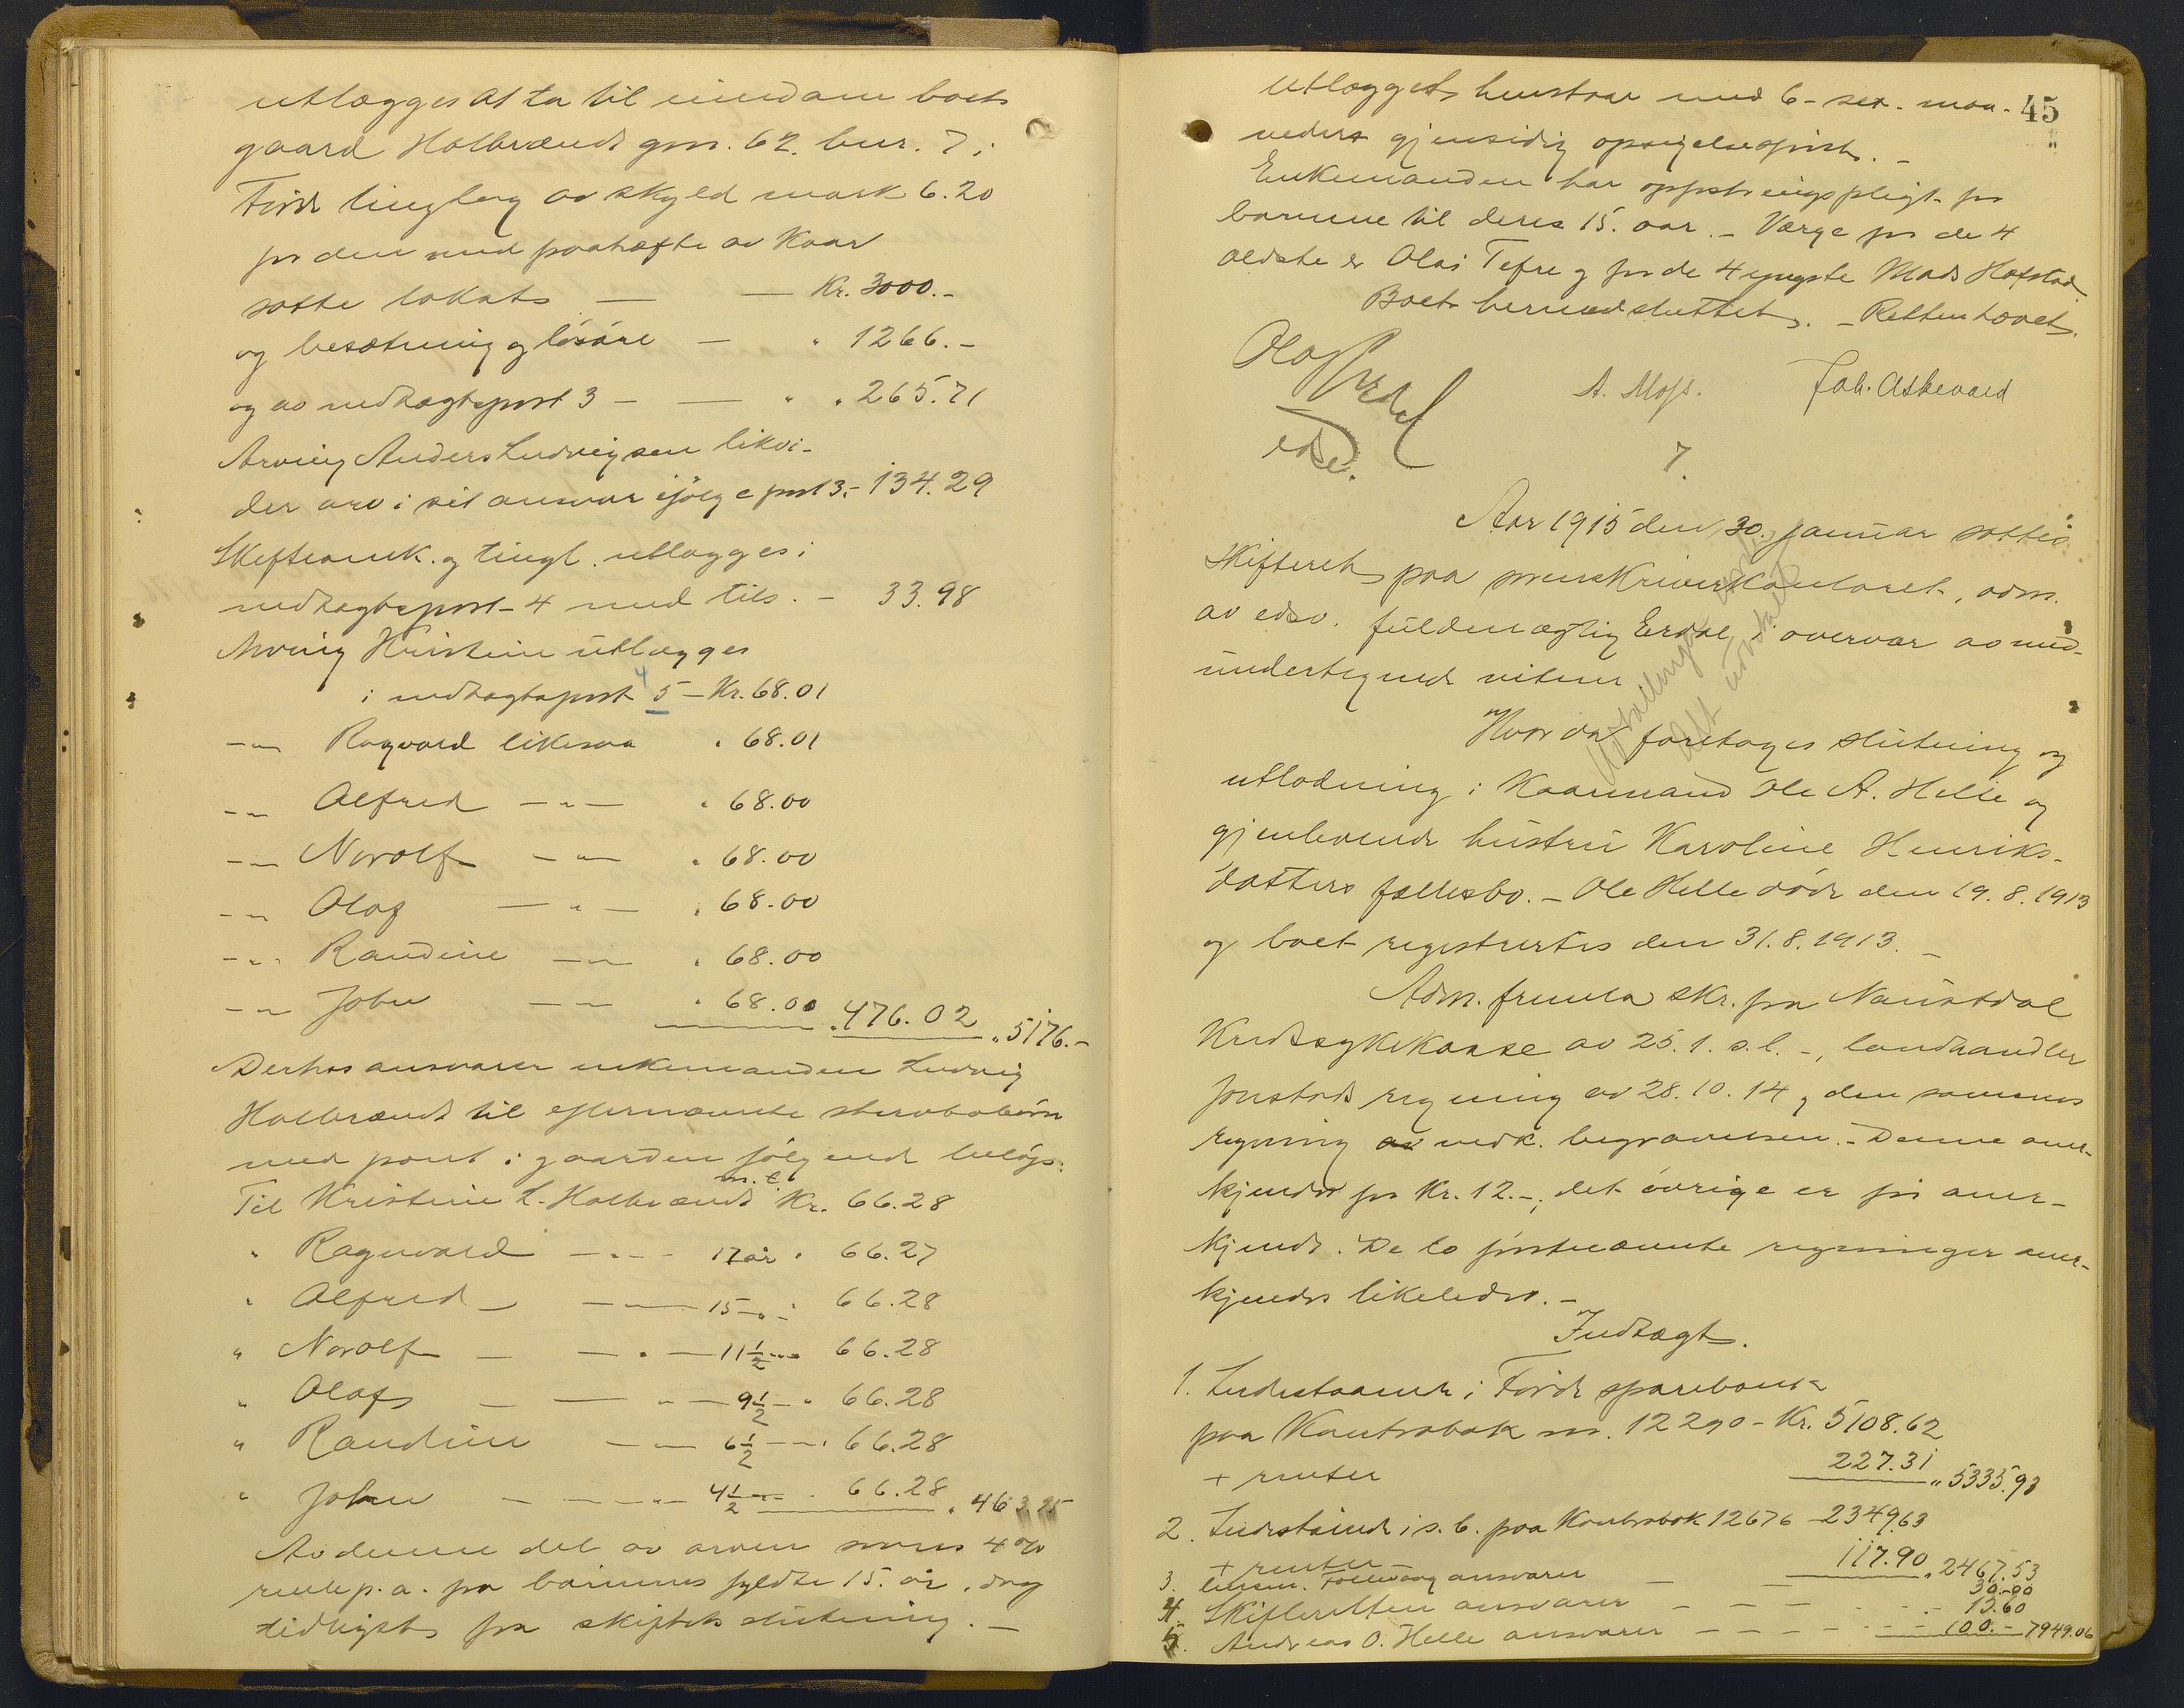 utlægges at ta til eiendom boets
gaard Halbrænds gnr. 62. bnr. 7 i
Førde tinglag av skyld mark 6.20
for den med paahæfte av kaar
satte takst — — Kr. 3000.-
og besætning og løsøre — " 1266.-
og av indtægtspost 3 — — " " 265.71
Arving Anders Ludvigsen likvi-
der arv i sit ansvar ifølge post 3.- 134.29
Skifteomk. og tingl. utlægges i
indtægtspost 4 med tils. - 33.98
Arving Kristine utlægges
i indtægtspost 4 5 - Kr. 68.01
-"- Ragvald likesaa " 68.01
-"- Alfred -"- " 68.00
-"- Norolf -"- " 68.00
-"- Olaf -"- " 68.00
-"- Raudine -"- " 68.00
-"- John -"- " 68.00 " 476.02 " 5176.-
Derhos ansvarer enkemanden Ludvig
Halbrændt til efternævnte stervbobørn
med pant i gaarden følgende beløp:
Til Kristine L. Halbrændt m. t. Kr. 66.28
" Ragnvald -"- 17 år " 66.27
" Alfred - -"- 15 -"- 66.28
" Norolf - -"- 11½ -"- 66.28
" Olaf - -"- 9½ -"- 66.28
" Raudine -"- 6½ -"- 66.28
" John - -"- 4½ -"- 66.28 " 463.95
Av denne del av arven svares 4 %
rente p. a. fra barnenes fyldte 15. år, dog
tidligst fra skiftets slutning. —
45
utlægget henstaar med 6 - sex - maa-
neders gjensidig opsigelsesfrist. -
Enkemanden har opfostringspligt for
barnene til deres 15. aar. - Værge for de 4
ældste er Olai Tefre og for de 4 yngste Mads Hafstad.
Boet hermed sluttet. - Retten hævet.
A. Moss. Joh. Askevold
edsv.
7.
Aar 1915 den 30. januar sattes
skifteret paa sorenskriverkontoret, adm.
av edsv. fuldmægtig Erdal i overvær av med-
undertegnede vitner
Hvorda foretoges slutning og
utlodning i kaarmand Ole A. Helle og
gjenlevende hustru Karoline Henriks-
datters fællesbo. - Ole Helle døde den 19. 8. 1913
og boet registrertes den 31. 8. 1913. -
Adm. fremla skr. fra Naustdal
Kredssykekasse av 25. 1. s. l. -, landhandler
Jonstads regning av 28. 10. 14, den sammes
regning av vedk. begravelsen. - Denne aner-
kjendes for Kr. 12.-, det øvrige er før aner-
kjendt. De to førstnævnte regninger aner-
kjendes likeledes. -
Indtægt.
1. Indestaaende i Førde sparebank
paa Kontrabok nr. 12290 - Kr. 5108.62
+ renter 227.31 " 5335.93
2. Indestående i s. b. paa Kontrabok 12676 - 2349.63
+ renter — 117.90 " 2467.53
3. lensm. ansvarer — — 30.00
4. Skifteretten ansvarer — — — 15.60
5. Andreas O. Helle ansvarer — — — 100.- 7949.06